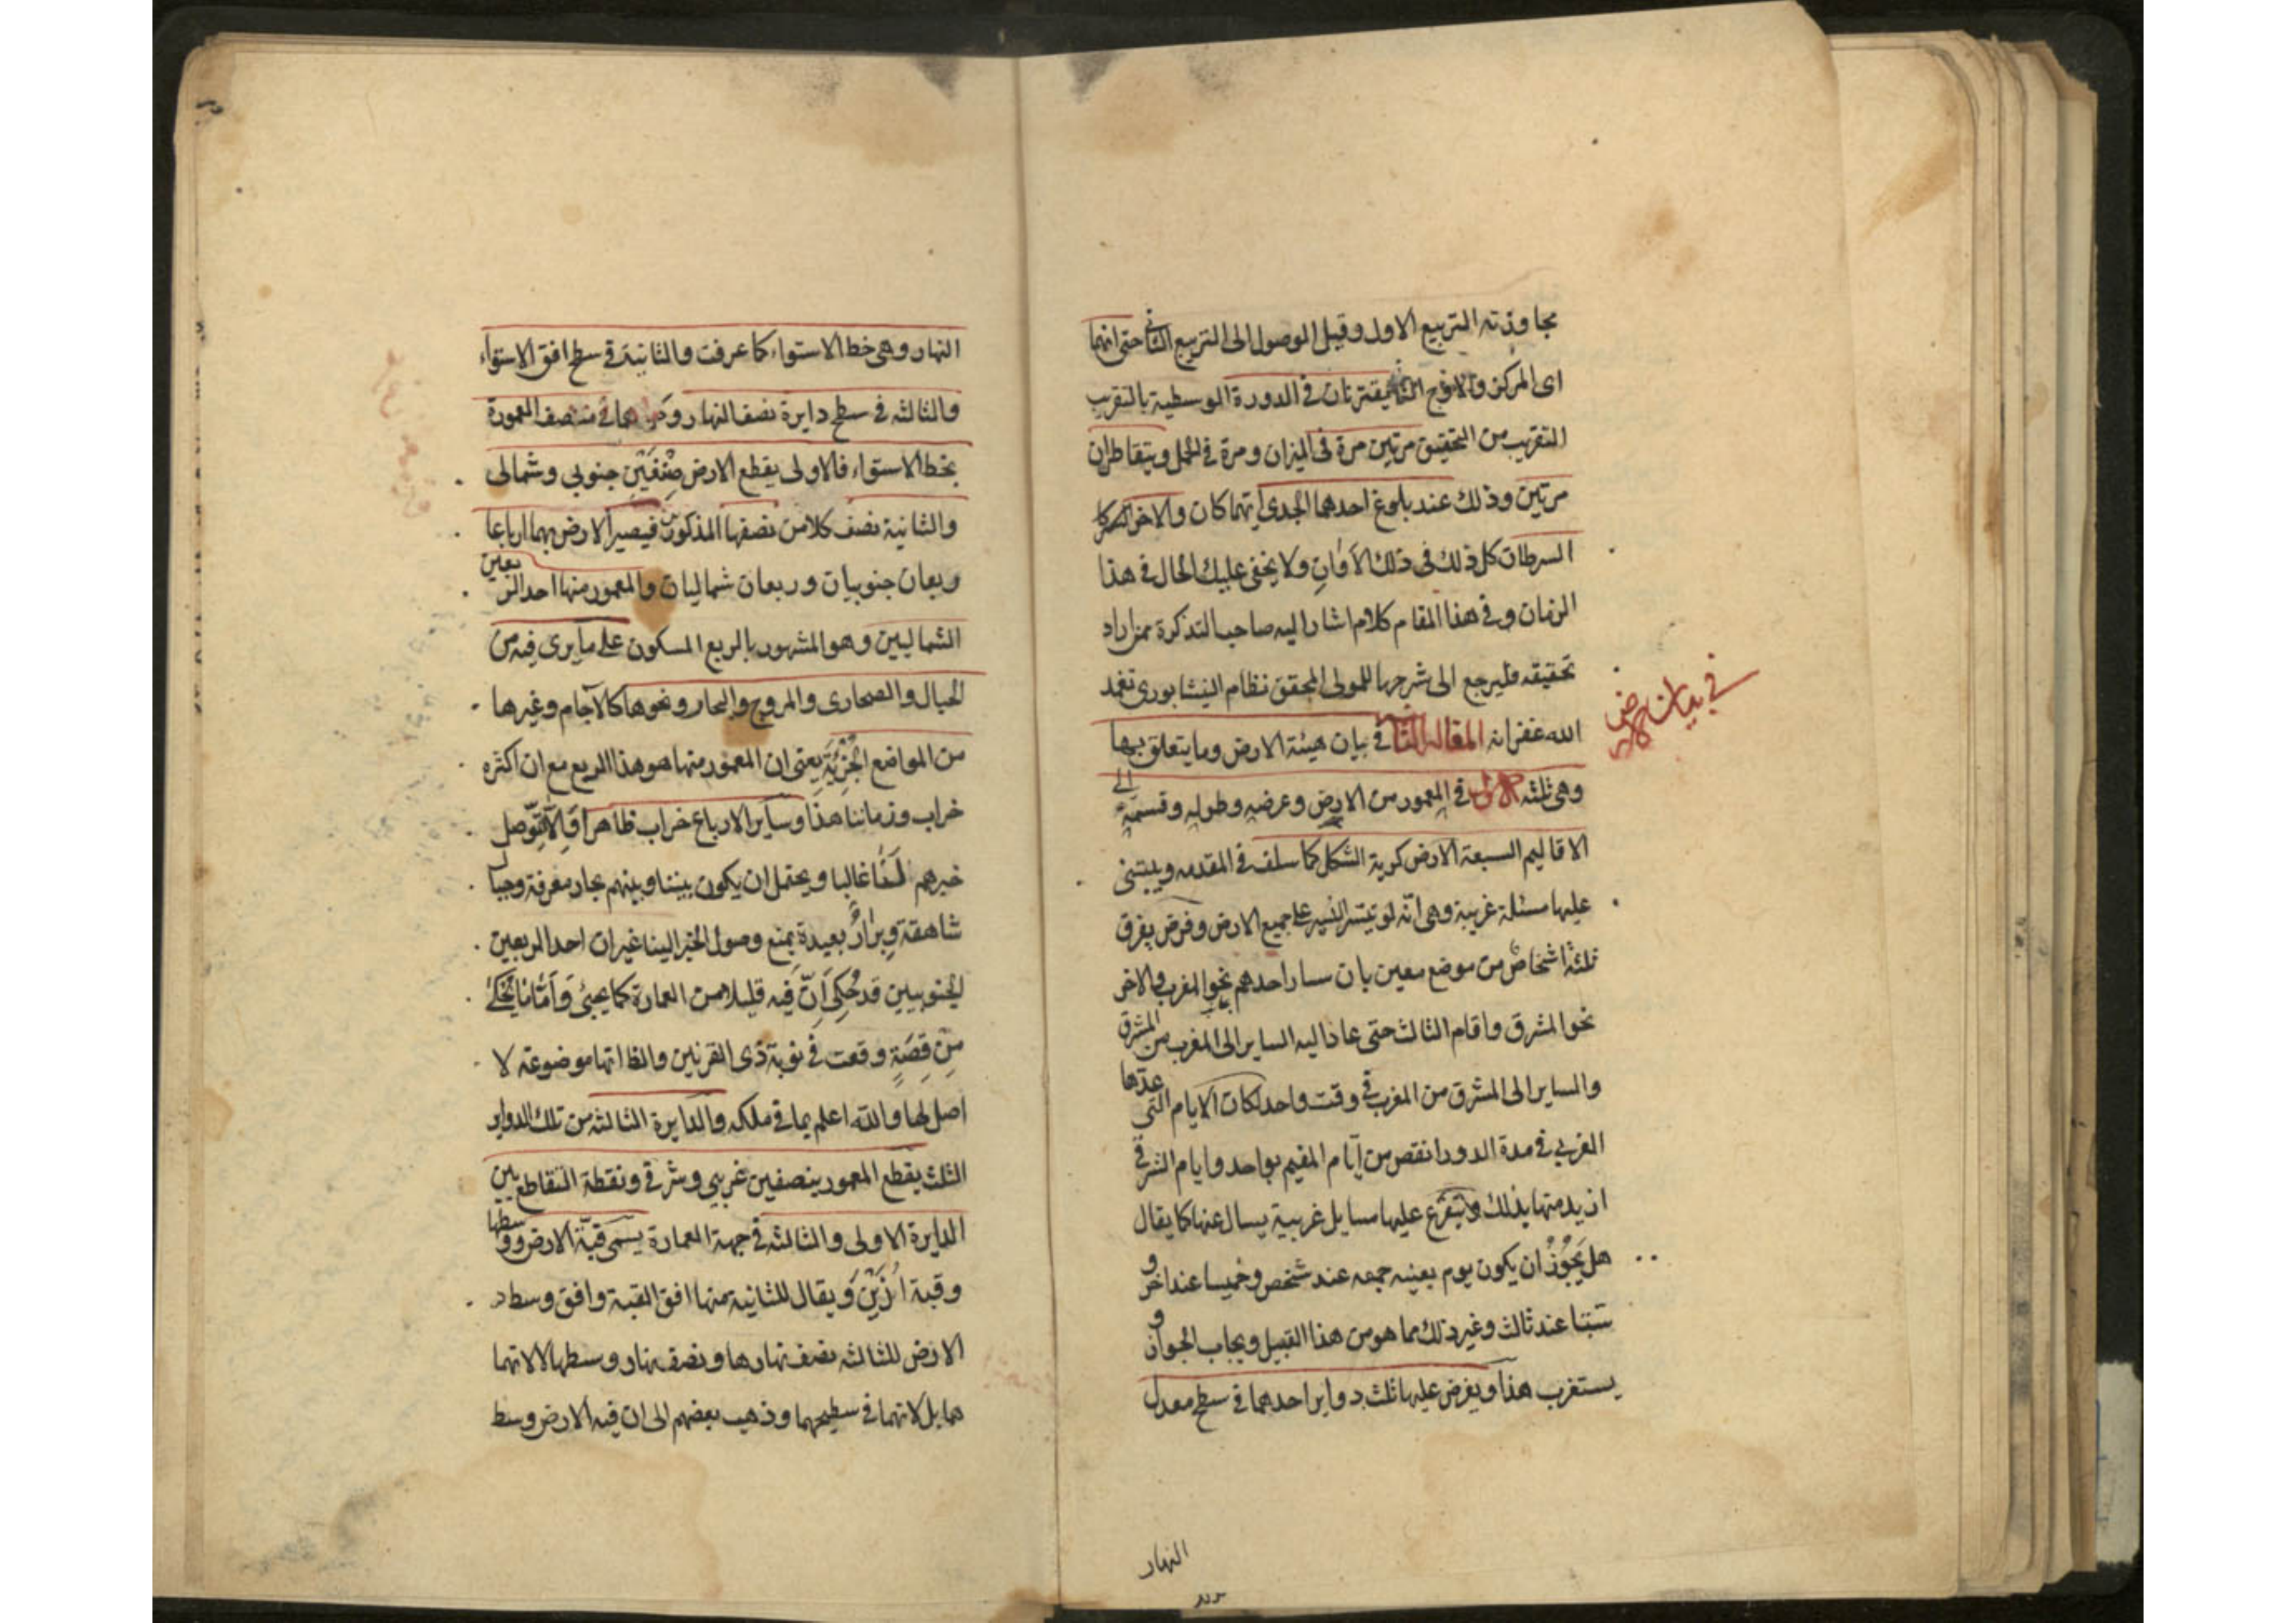 مجاوزته التربيع الاول وقبل الوصول الى التربيع الثاني حتى انهما
اى المركز والاوج يقترنان في الدورة الوسطية بالتقريب
القريب من التحقيق مرتين مرة في الميزان ومرة في الحمل ويتقاطران
مرتين وذلك عند بلوغ احدهما الجدى ايهما كان والاخر
السرطان كل ذلك فى ذلك الاوان ولا يخفى عليك الحال في هذا
الزمان وفي هذا المقام كلام اشار اليه صاحب التذكرة من اراد
تحقيقه فليرجع الى شرحها للمولى المحقق نظام النيشابورى تغمد
الله غفرانه المقالة الثا في بيان هيئة الارض وما يتعلق بها
في بيان الارض
وهى ثلثه الاول في المعمور من الارض وعرضه وطوله وقسمته الى
الاقاليم السبعة الارض كرية الشكل كما سلف في المقدمه ويبتنى
عليها مسئلة غريبة وهى انّه لو تيسّر السير على جميع الارض وفرض تفرق
ثلثة اشخاص من موضع معين بان سار احدهم نحو المغرب والاخر
نحو المشرق واقام الثالث حتى عاد اليه الساير الى المغرب من المشرق
والساير الى المشرق من المغرب في وقت واحد لكانت الايام التى عدّها
الغربي في مدة الدور انقص من ايّام المقيم بواحد وايام الشرقي
ازيد منها بذلك ويتفرّع عليها مسايل غريبة يسال عنها كما يقال
هل يَجُوزُ ان يكون يوم بعينه جمعه عند شخص وخميسا عند اخر و
سبتا عند ثالث وغير ذلك مما هو من هذا القبيل ويجاب بالجواز و
يستغرب هذا ويفرض عليها ثلث دواير احدهما في سطح معدل
النهار
النهار وهى خط الاستواء كما عرفت والثانية في سطح افق الاستواء
والثالثه في سطح دايرة نصف النهار في منتصف المعمورة
بخط الاستواء فالاولى يقطع الارض نصفَيْنِ جنوبي وشمالى
والثانية نصف كلا من نصفيها المذكورين فيصير الارض بهما ارباعا
ربعان جنوبيان وربعان شماليان والمعمور منها احد الربعين
الشماليين وهو المشهور بالربع المسكون على ما يرى فيه من
الجبال والصحارى والمروج والبحار ونحوها كالآجام وغيرها
من المواضع الخَرِبَة يعنى ان المعمور منها هو هذا الربع مع ان اكثره
خراب فى زماننا هذا وساير الارباع خراب ظاهرا وَالّا لَتَوصل
خبرهم الينا غالبا ويحتمل ان يكون بيننا وبينهم بحار مغرقة وجبال
شاهقة وبرارٍ بعيدة يمنع وصول الخبر الينا غير ان احد الربعين
الجنوبيين قد حُكِىَ اَنّ فيه قليلا من العمارة كما يجئ وَاَمّا ما يُحكى
مِن قِصَةٍ وقعت في نوبة ذى القرنين والظ انها موضوعة لا
اصل لها والله اعلم بما في ملكه والدايرة الثالثه من تلك الدواير
الثلث يقطع المعمور بنصفين غربي وشرقي ونقطة التقاطع بين
الدايرة الاولى والثالثه في جهة العمارة يسمى قبّة الارض ووسطها
وقبة ارين وَيقال للثانيه منها افق القبة وافق وسط
الارض للثالثه نصف نهارها ونصف نهار وسطها لا لانهما
هما بل لانهما في سطحيهما وذهب بعضهم الى ان قبة الارض وسط